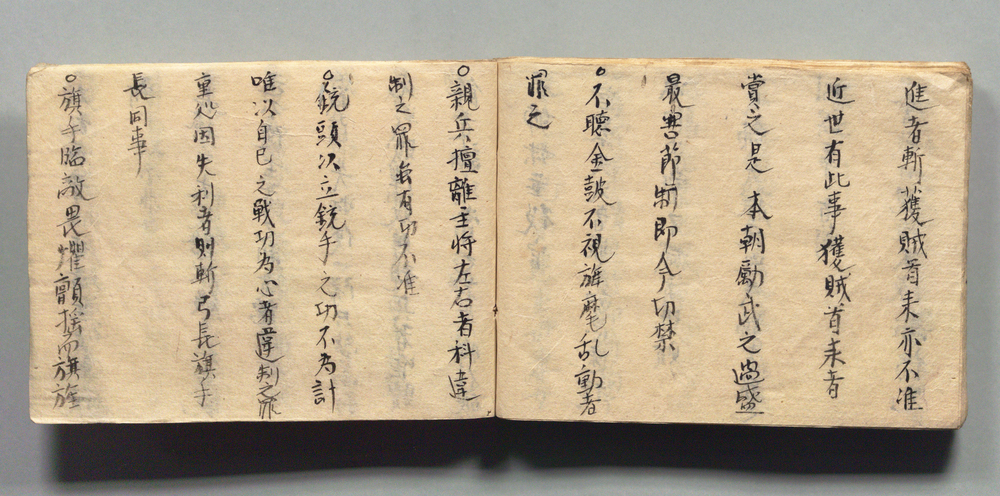 進者斬獲賊首来亦不准
近世有此事獲賊首来者
賞之是 本朝勵武之過盛
最害節制即今切禁
○不聴金鼓不視旌麾乱動者
罪之
○親兵擅離主将左右者科違
制之罪雖有功不准
○銃頭以立銃手之功不為計
唯以自己之戦功為心者違制之罪
重処因失利者則斬弓長旗手
長同事
○旗手臨敵畏懼顫揺而旗旌